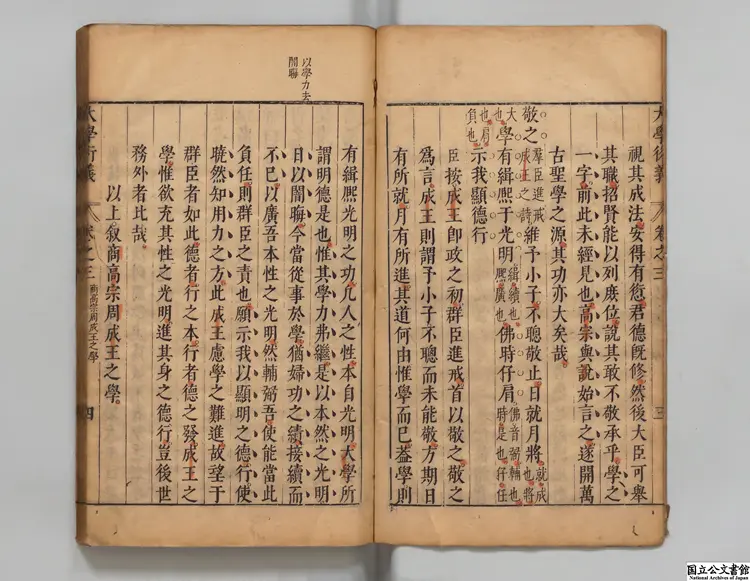 大學衍義 卷之三 三
視其成法安得有愆君德既修然後大臣可舉
其職招賢能以列庶位說其敢不敬承乎學之
一字前此未經見也高宗與說始言之遂開萬
古聖學之源其功亦大矣哉
敬之羣臣進戒成王之詩維予小子不聰敬止日就月將就成也將
大也學有緝熙于光明緝續也熙廣也佛時仔肩佛音弼輔也時是也仔任
也肩負也示我顯德行
臣按成王即政之初羣臣進戒首以敬之敬之
爲言成王則謂予小子不聰而未能敬方期日
有所就月有所進其道何由惟學而已蓋學則
以學力夫
闇聯
有緝熙光明之功凡人之性本自光明大學所
謂明德是也惟其學力弗繼是以本然之光明
日以闇晦今當從事於學猶婦功之績接續而
不已以廣吾本性之光明然輔弼吾使能當此
負任則群臣之責也願示我以顯明之德行使
曉然知用力之方此成王慮學之難進故望于
群臣者如此德者行之本行者德之發成王之
學惟欲充其性之光明進其身之德行豈後世
務外者比哉
以上敘商高宗周成王之學
大學衍義 卷之三 商高宗周成王之學 四
国立公文書館
National Archives of Japan